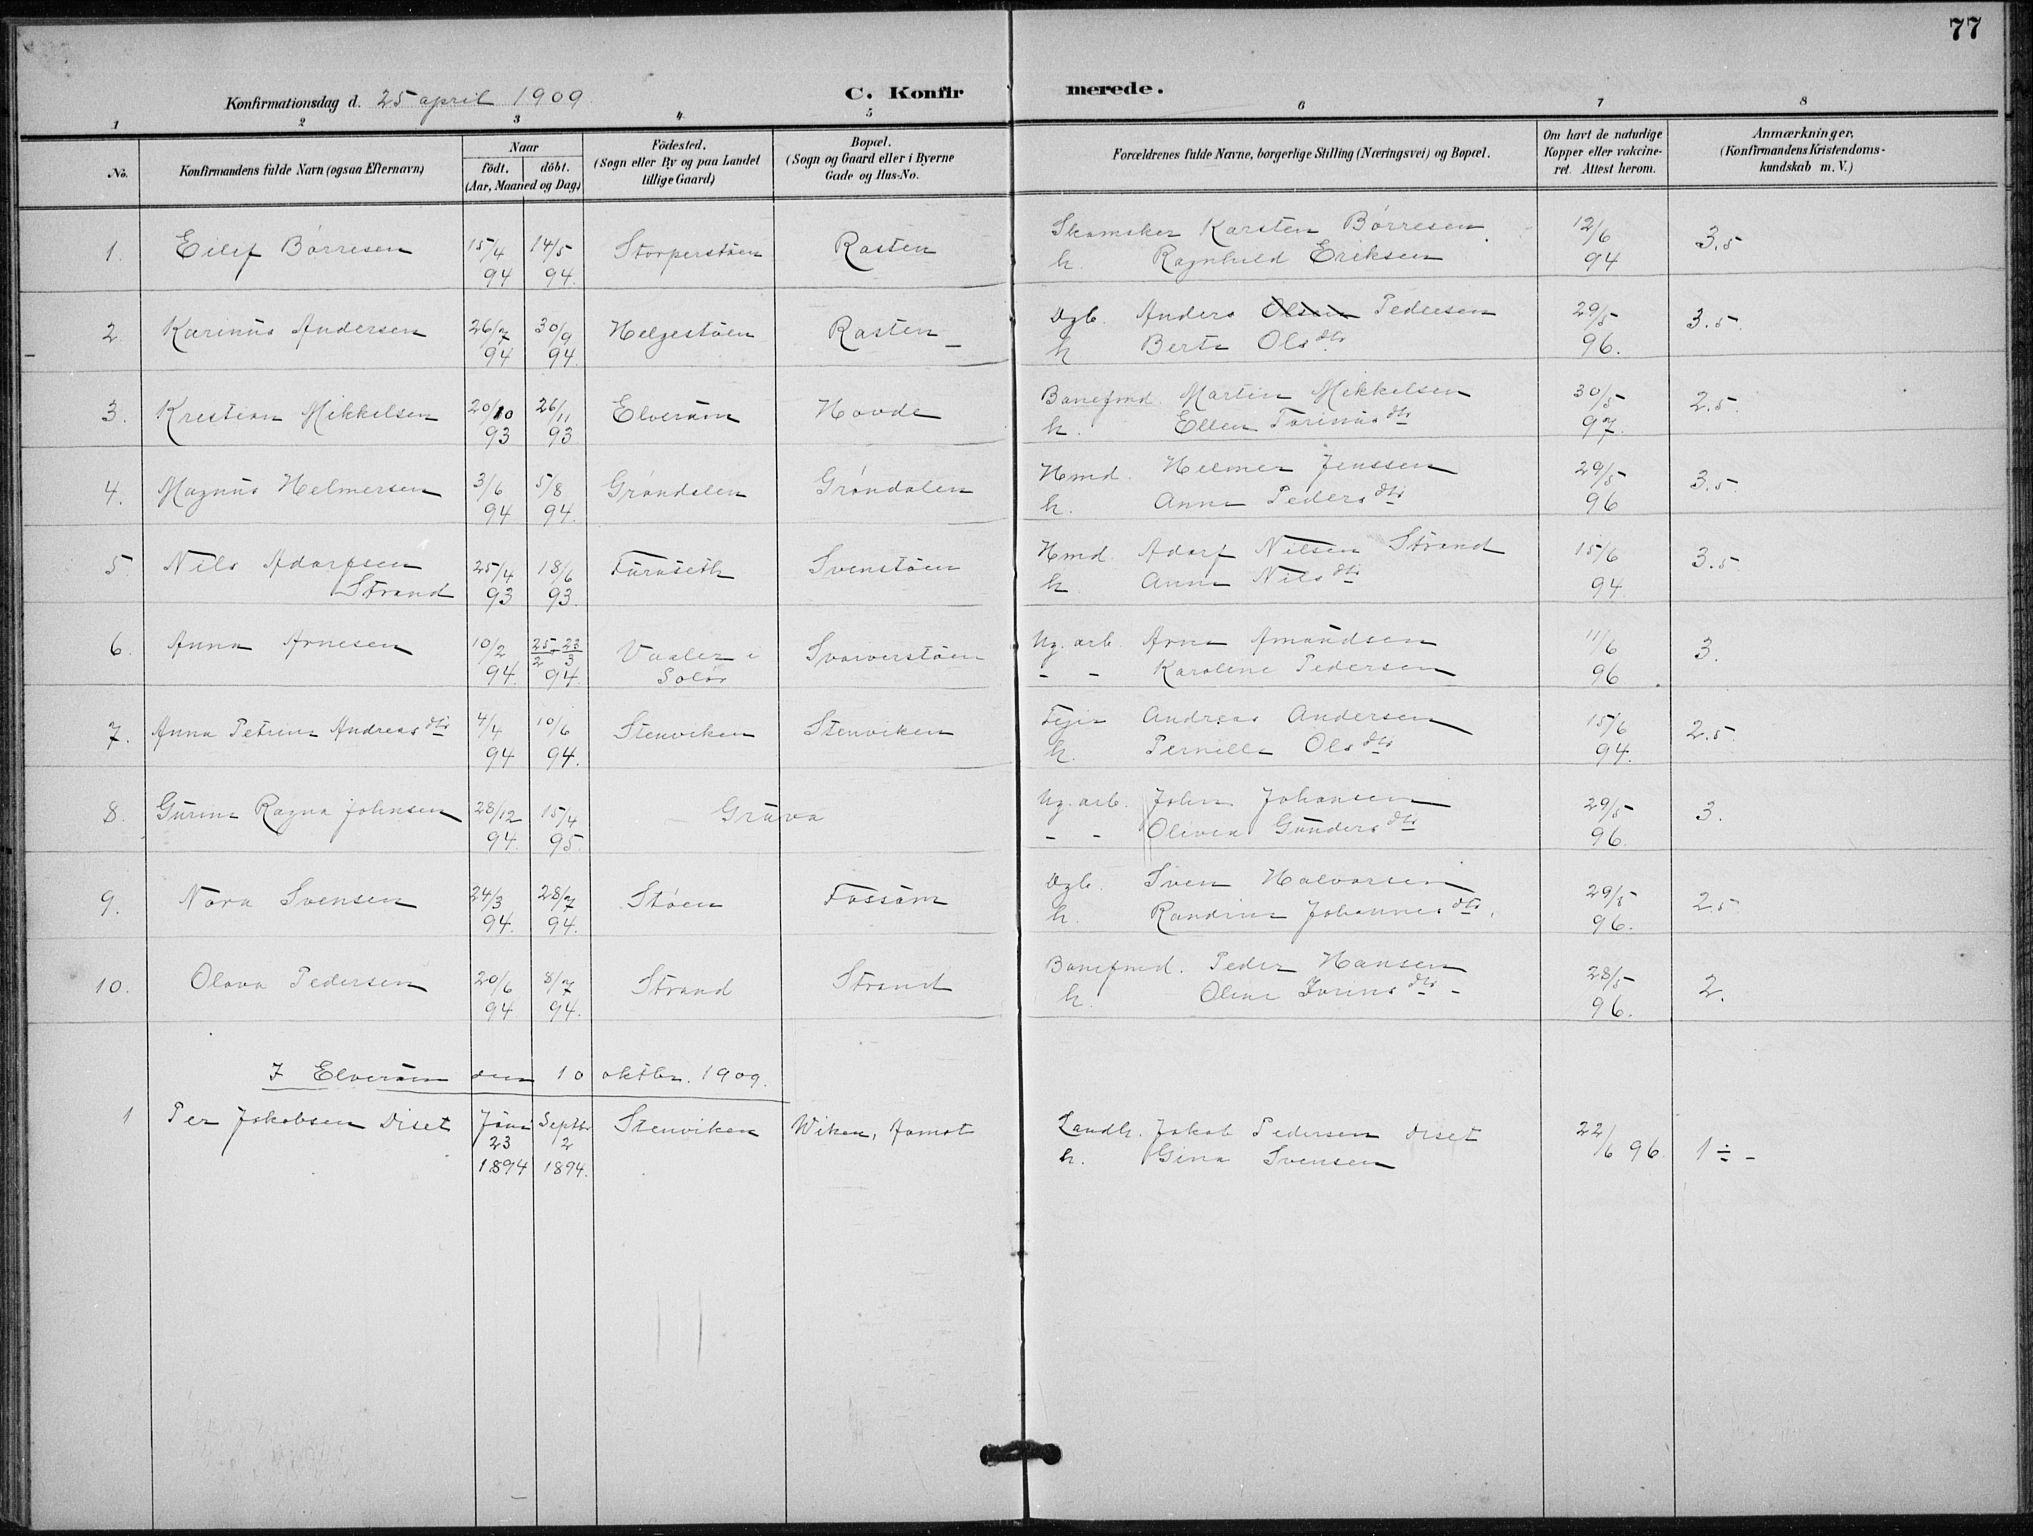 77
Konfirmationsdag d. 25 april 1909
C. Konfirmerede.
1 2 3 4 5 6 7 8
No.
Konfirmandens fulde Navn (ogsaa Efternavn)
Naar
født. døbt.
(Aar, Maaned og Dag)
Fødested.
(Sogn eller By og paa Landet
tillige Gaard)
Bopæl.
(Sogn og Gaard eller i Byerne
Gade og Hus-No.
Forældrenes fulde Navne, borgerlige Stilling (Næringsvei) og Bopæl.
Om havt de naturlige
Kopper eller vakcine-
ret. Attest herom.
Anmærkninger,
(Konfirmandens Kristendoms-
kundskab m. V.)
1. Eilef Børresen 15/4 94 14/5 94. Storperstøen Rasten Skomaker Karsten Børresen 12/6 94 3.5
h. Ragnhild Eriksen
2. Karinus Andersen 26/7 94 30/9 94. Helgestøen Rasten Dgb. Anders Olsen Pedersen 29/5 96. 3.5.
h Berte Olsdtr
3. Krestian Mikkelsen 20/10 93 26/11 93 Elverum Hovde Banefmd. Martin Mikkelsen 30/5 97. 2.5.
h. Ellen Torinusdtr
4. Magnus Helmersen 3/6 94 5/8 94. Grøndalen Grøndalen Hmd. Helmer Jenssen 29/5 96 3.5.
h. Anne Pedersdtr
5 Nils Adorfsen 25/4 93 18/6 93. Furuseth Svenstøen Hmd Adorf Nilsen Strand 15/6 94. 3.5
Strand h Anne Nilsdtr
6. Anna Arnesen 10/2 94. 25/2 - 23/3 94. Vaaler i Svarverstøen Ug. arb. Arne Amundsen 11/6 96 3.
Solør - - Karoline Pedersen
7. Anna Petrine Andreasdtr 4/4 94 10/6 94. Stenviken Stenviken Andreas Andersen 15/6 94. 2.5.
h. Pernille Olsdtr
8. Gurine Ragna Johnsen 28/12 94. 15/4 95. Grava Ug. arb. John Johansen 29/5 96. 3.
- - Olivea Gundersdtr
9. Nora Svensen 24/3 94. 28/7 94. Støen Fossum Dgb. Sven Halvorsen 29/5 96. 2.5
h. Randine Johannesdtr.
10. Olava Pedersen 20/6 94 8/7 94. Strand Strand Banefmd. Peder Hansen 28/5 96. 2.
h. Oline
I Elverum den 10 oktbr. 1909.
1 Per Jakobsen Diset Juni 23 1894 Septbr 2 1894. Stenviken Wiken, Aamot Landh. Jakob Pedersen Diset 22/6 96. 1 ÷ -
h. Gina Svensen